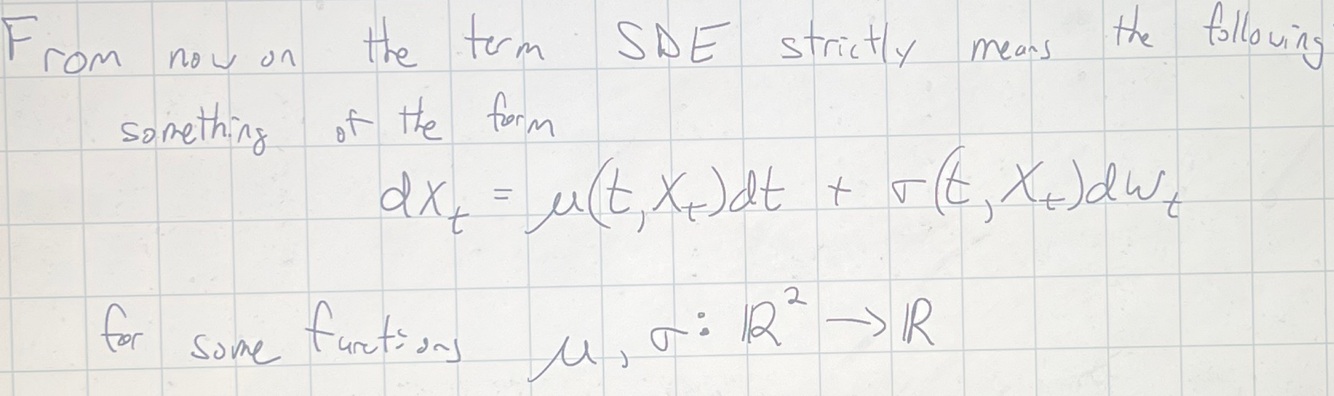 From now on the term SDE strictly means the following
something of the form
dX_t = μ(t, X_t)dt + σ(t, X_t)dW_t
for some functions μ, σ: ℝ² → ℝ